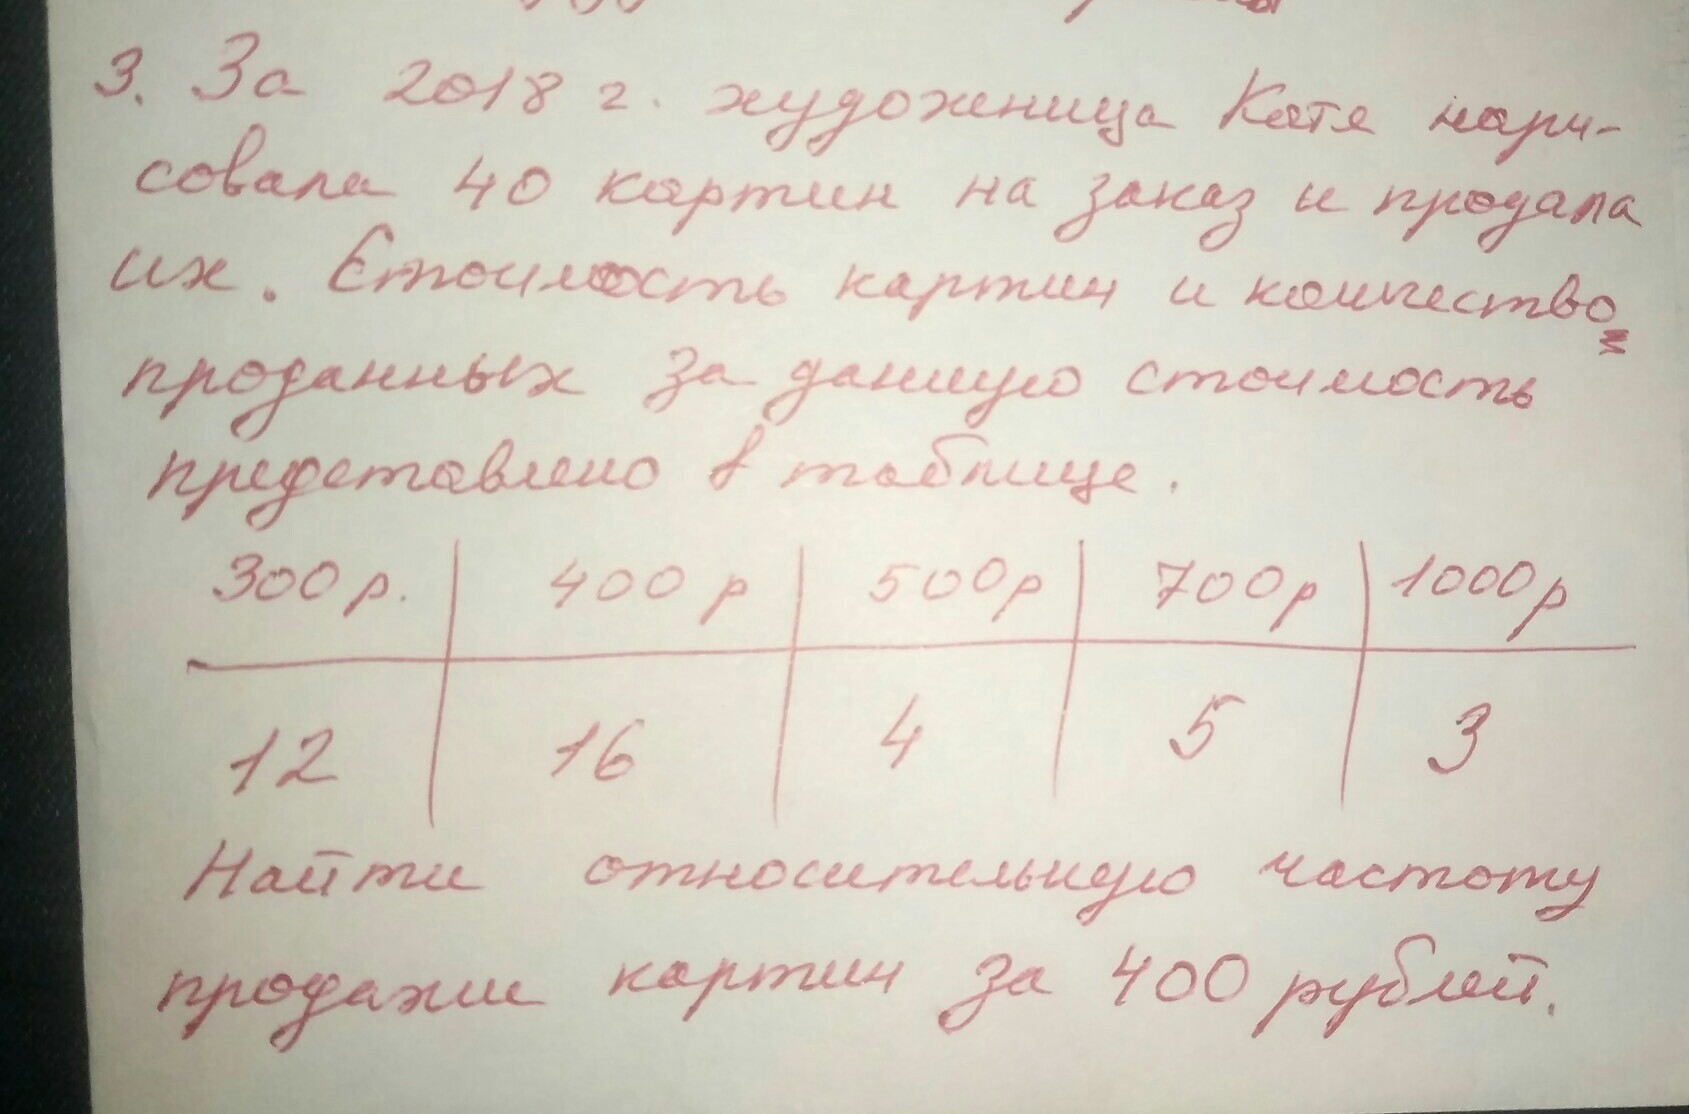 3. За 2018 г. художница Катя нари-
совала 40 картин на заказ и продала
их. Стоимость картин и количество
проданных за данную стоимость
представлено в таблице.
300р. 400р 500р 700р 1000р
12 16 4 5 3
Найти относительную частоту
продажи картин за 400 рублей.